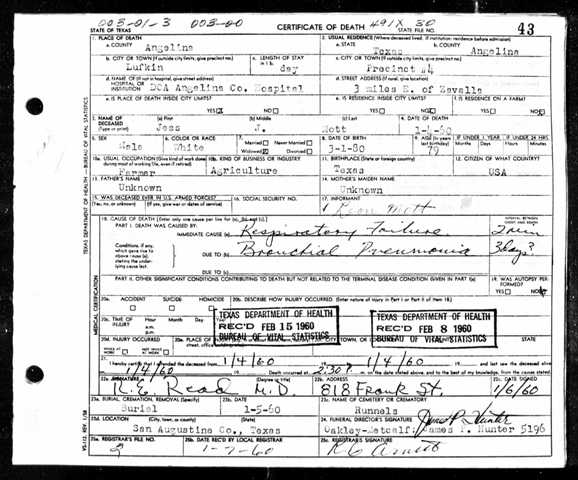 003-01-3 003-00
STATE OF TEXAS CERTIFICATE OF DEATH 491X 30 STATE FILE NO. 43
1. PLACE OF DEATH 2. USUAL RESIDENCE (Where deceased lived. If institution: residence before admission)
a. COUNTY Angelina a. STATE Texas b. COUNTY Angelina
b. CITY OR TOWN (If outside city limits, give precinct no.) Lufkin c. LENGTH OF STAY in 1 b. day c. CITY OR TOWN (If outside city limits, give precinct no.) Precinct #4
d. NAME OF (If not in hospital, give street address) HOSPITAL OR INSTITUTION DOA Angelina Co. Hospital d. STREET ADDRESS (If rural, give location) 3 miles E. of Zavalla
e. IS PLACE OF DEATH INSIDE CITY LIMITS? YES NO e. IS RESIDENCE INSIDE CITY LIMITS? YES NO f. IS RESIDENCE ON A FARM? YES NO
3. NAME OF DECEASED (Type or print) (a) First Jess (b) Middle J. (c) Last Mott 4. DATE OF DEATH 1-4-60
5. SEX Male 6. COLOR OR RACE White 7. Married Never Married Widowed Divorced 8. DATE OF BIRTH 3-1-80 9. AGE (In years last birthday) 79 IF UNDER 1 YEAR Months Days IF UNDER 24 HRS. Hours Minutes
10a. USUAL OCCUPATION (Give kind of work done during most of working life, even if retired) Farmer 10b. KIND OF BUSINESS OR INDUSTRY Agriculture 11. BIRTHPLACE (State or foreign country) Texas 12. CITIZEN OF WHAT COUNTRY? USA
13. FATHER'S NAME Unknown 14. MOTHER'S MAIDEN NAME Unknown
15. WAS DECEASED EVER IN U.S. ARMED FORCES? (Yes, no, or unknown) (If yes, give war or dates of service) 16. SOCIAL SECURITY NO. 17. INFORMANT Mott
18. CAUSE OF DEATH [Enter only one cause per line for (a), (b), and (c).] INTERVAL BETWEEN ONSET AND DEATH
PART I. DEATH WAS CAUSED BY:
IMMEDIATE CAUSE (a) Respiratory Failure 2 min
Conditions, if any, which gave rise to above cause (a), stating the underlying cause last. DUE TO (b) Bronchial Pneumonia 3 days?
DUE TO (c)
PART II. OTHER SIGNIFICANT CONDITIONS CONTRIBUTING TO DEATH BUT NOT RELATED TO THE TERMINAL DISEASE CONDITION GIVEN IN PART I(a) 19. WAS AUTOPSY PERFORMED? YES NO
20a. ACCIDENT SUICIDE HOMICIDE 20b. DESCRIBE HOW INJURY OCCURRED. (Enter nature of injury in Part I or Part II of item 18.)
20c. TIME OF INJURY Hour Month Day Year a.m. p.m.
TEXAS DEPARTMENT OF HEALTH REC'D FEB 15 1960 BUREAU OF VITAL STATISTICS
TEXAS DEPARTMENT OF HEALTH REC'D FEB 8 1960 BUREAU OF VITAL STATISTICS
20d. INJURY OCCURRED
21. I hereby certify that I attended the deceased from 1/4/60 19 to 1/4/60 19 and last saw the deceased alive
on 1/4/60 19 Death occurred at 2:30 P.m. on the date stated above, and to the best of my knowledge, from the causes stated.
22a. SIGNATURE R.E. Read (Degree or title) M.D. 22b. ADDRESS 818 Frank St. 22c. DATE SIGNED 1/6/60
23a. BURIAL, CREMATION, REMOVAL (Specify) Burial 23b. DATE 1-5-60 23c. NAME OF CEMETERY OR CREMATORY Runnels
23d. LOCATION (City, town, or county) (State) San Augustine Co., Texas 24. FUNERAL DIRECTOR'S SIGNATURE Oakley-Metcalf: James P. Hunter 5196
25a. REGISTRAR'S FILE NO. 25b. DATE REC'D BY LOCAL REGISTRAR 1-7-60 25c. REGISTRAR'S SIGNATURE
TEXAS DEPARTMENT OF HEALTH — BUREAU OF VITAL STATISTICS
MEDICAL CERTIFICATION